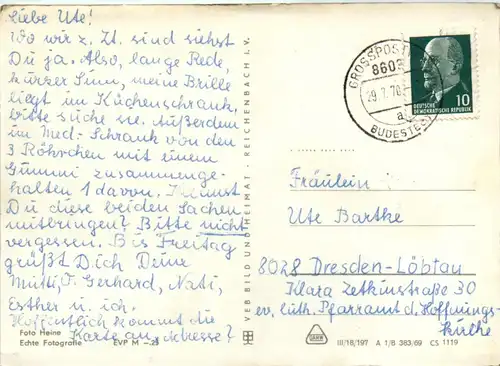 Liebe Ute!
Wo wir z. Zt. sind siehst
Du ja. Also, lange Rede,
kurzer Sinn, meine Brille
liegt im Küchenschrank,
bitte suche sie. Außerdem
im Med.-Schrank von den
3 Röhrchen mit einem
Gummi zusammenge-
halten 1 davon. Kannst
Du diese beiden Sachen
mitbringen? Bitte nicht
vergessen. Bis Freitag
grüßt Dich Deine
Mutti, F. Gerhard, Nati,
Esther u. ich.
Hoffentlich kommt die
Karte an, Adresse?
Foto Heine
Echte Fotografie EVP M -.25
VEB BILD UND HEIMAT · REICHENBACH I. V.
GROSSPOSTW
8603
29.7.70
a
BUDESTE
DEUTSCHE
DEMOKRATISCHE REPUBLIK
10
Fräulein
Ute Barthe
8028 Dresden-Löbtau
Klara Zetkinstraße 30
ev. luth. Pfarramt d. Hoffnungs-
kirche
III/18/197 A 1/B 383/69 CS 1119